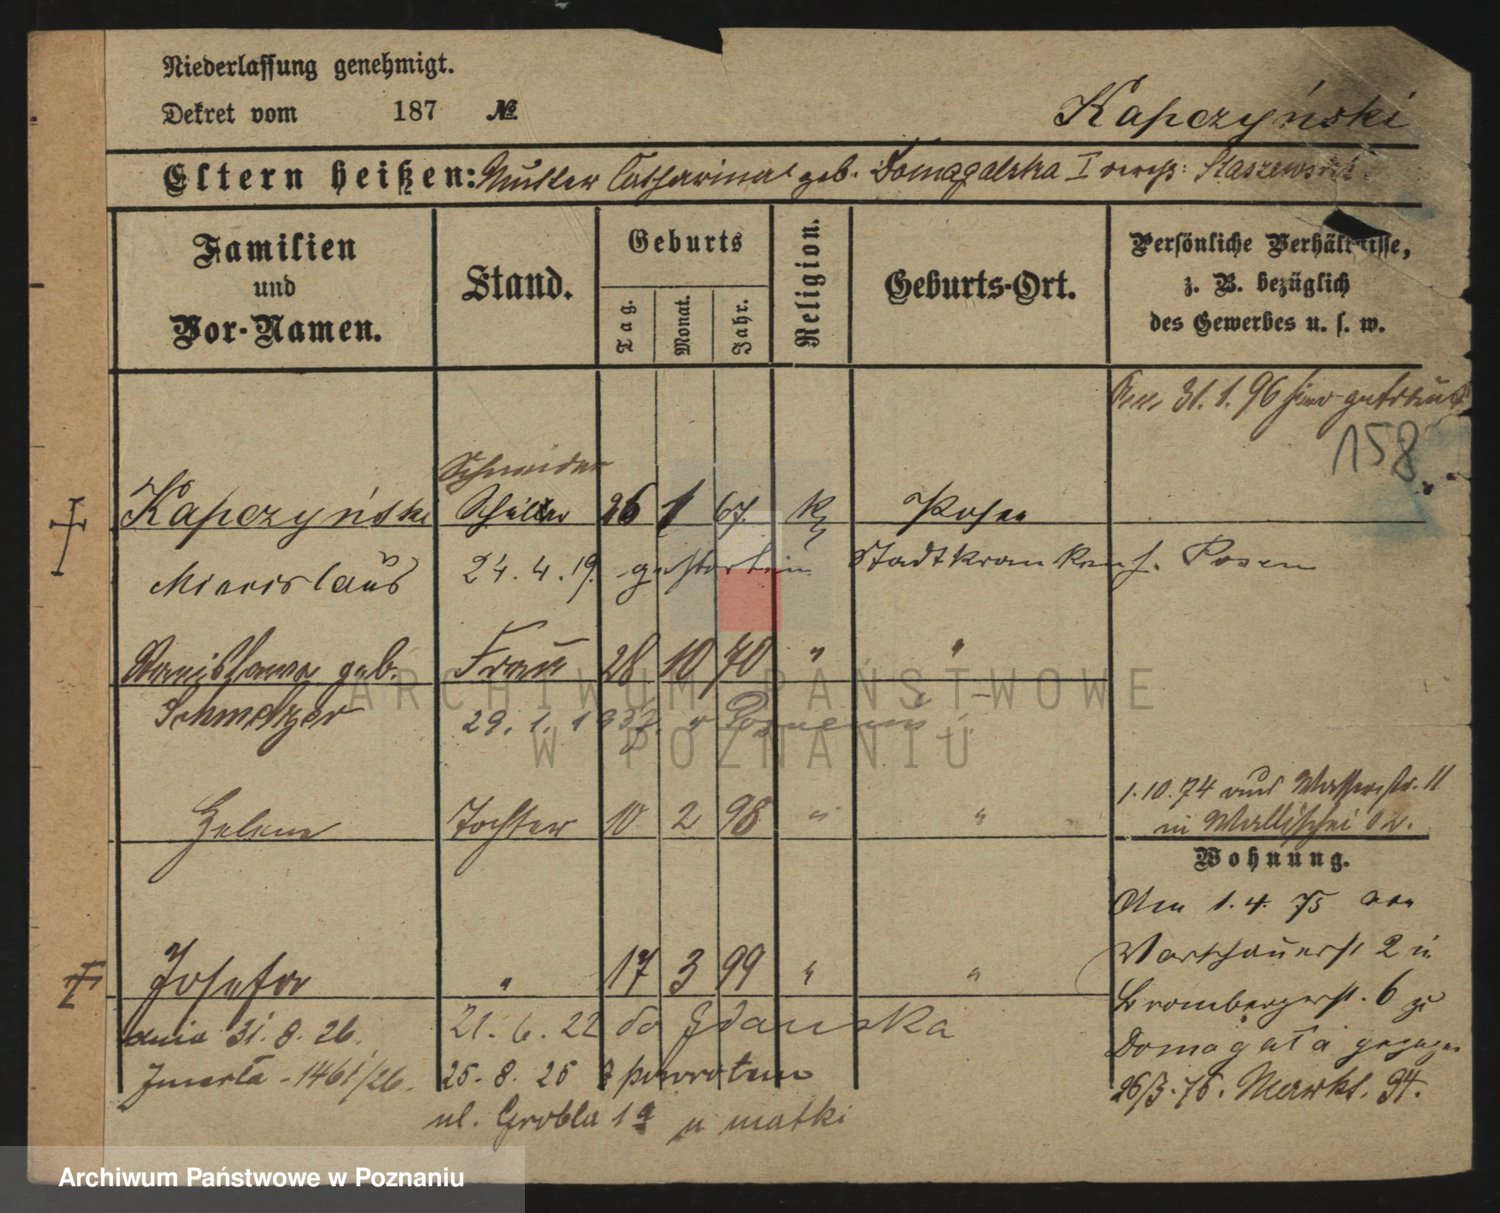 Niederlassung genehmigt.
Dekret vom 187 №
Kapczyński
Eltern heißen: Mutter Catharina geb. Domagalska I verehl: Staszewska
Familien und Vor-Namen.
Stand.
Geburts
Tag.
Monat.
Jahr.
Religion.
Geburts-Ort.
Persönliche Verhältnisse,
z. B. bezüglich
des Gewerbes u. s. w.
31. 1. 96 hier getraut
158
Schneider
Kapczyński Schüler 26 1 67. K Posen
24. 4. 19. gestorben Stadtkrankenh. Posen
Stanislawa geb. Frau 28 10 70 " "
Schmelzer 29. 1. 193 w Poznaniu
1. 10. 74 Wasserstr. 11
in Wallischei 2.
Helene Tochter 10 2 98 " "
Wohnung.
1. 4. 75 von
Warschauerst 2 in
Brombergerst. 6 zu
Domagała gezogen
26/3. 76. Markt. 94.
Josefa " 17 3 99 " "
dnia 31. 8. 26. 21. 6. 22 do Gdańska
Zmarła - 1461/26. 25. 8. 25 z powrotem
ul. Grobla 1a u matki
ARCHIWUM PAŃSTWOWE
W POZNANIU
Archiwum Państwowe w Poznaniu